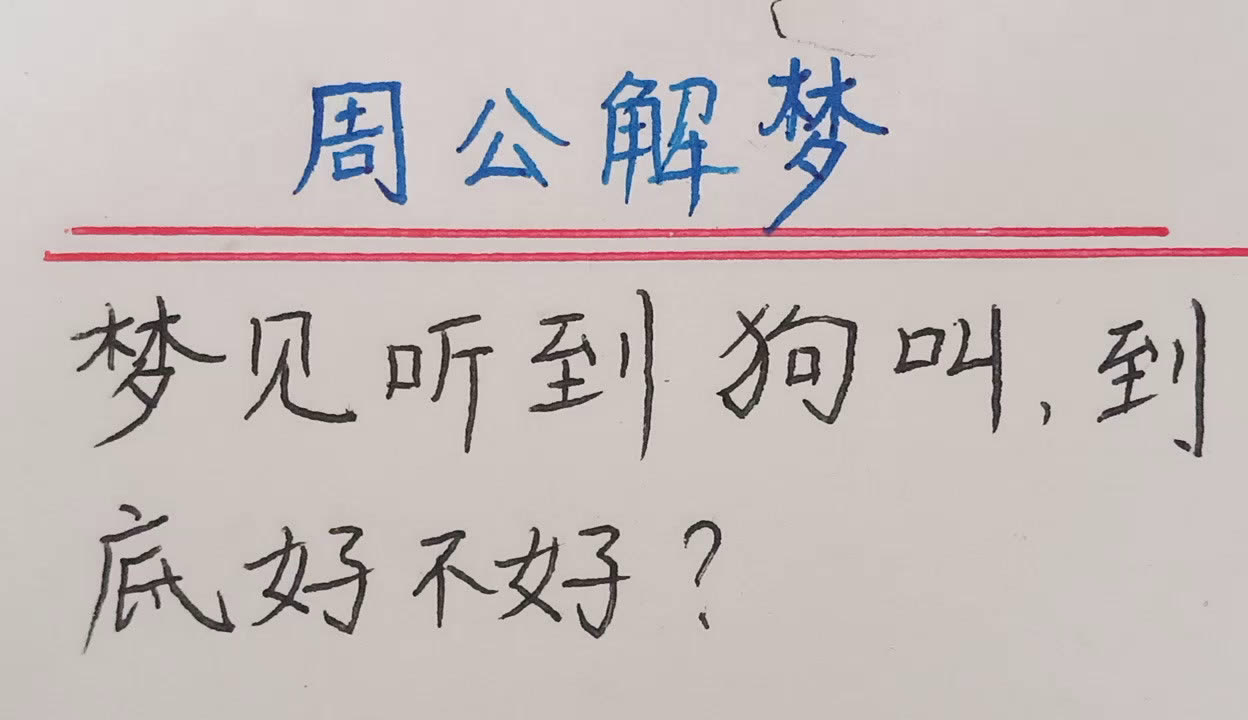 周公解梦
梦见听到狗叫,到
底好不好?